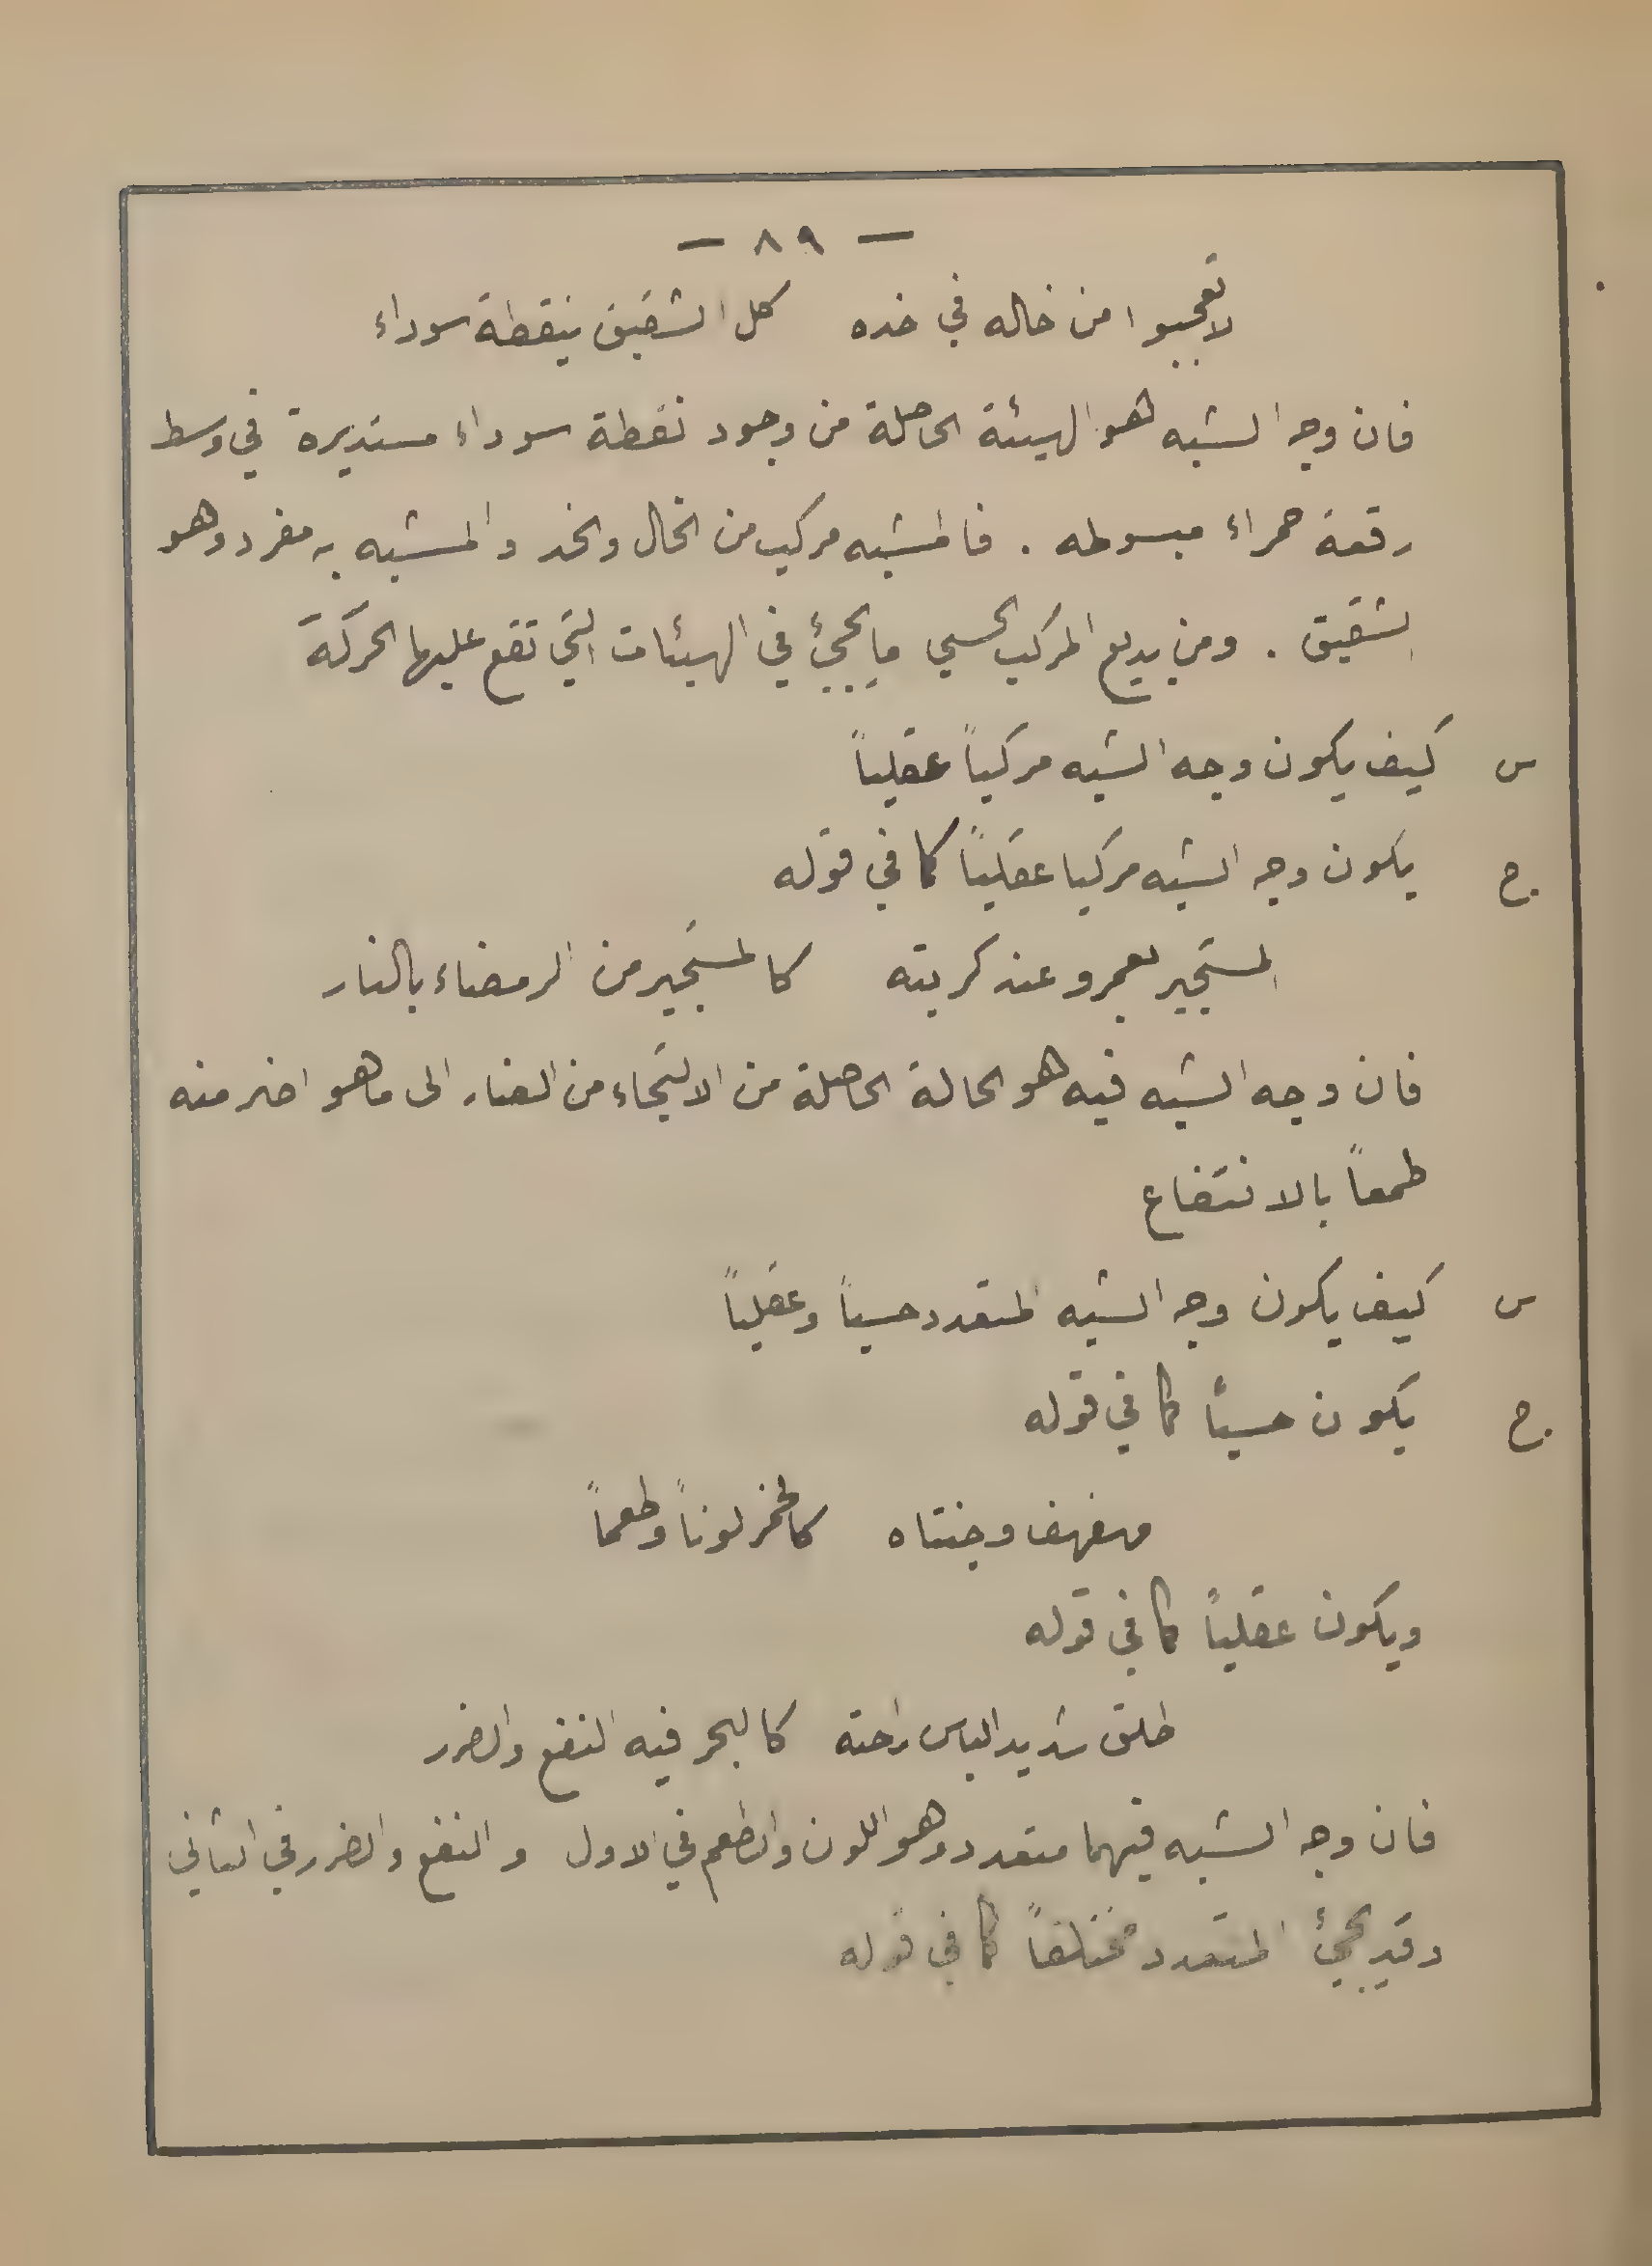 — ٨٩ —
لا تعجبوا من خاله في خده كل الشقيق بنقطة سوداء
فان وجه الشبه هو الهيئة الحاصلة من وجود نقطة سوداء مستديرة في وسط
رقعة حمراء مبسوطه . فالمشبه مركب من الخال والخد والمشبه به مفرد وهو
الشقيق . ومن بديع المركب الحسي ما يجيئ في الهيئات التي تقع عليها الحركة
س كيف يكون وجه الشبه مركباً عقلياً
ج. يكون وجه الشبه مركبا عقلياً كما في قوله
المستجير بعمرو عند كربته كالمستجير من الرمضاء بالنار
فان وجه الشبه فيه هو الحالة الحاصلة من الالتجاء من الضار الى ما هو اضر منه
طمعاً بالانتفاع
س كيف يكون وجه الشبه المتعدد حسياً وعقلياً
ج. يكون حسياً كما في قوله
مهفهف وجنتاه كالخمر لوناً وطعماً
ويكون عقلياً كما في قوله
طلق شديد الباس راحته كالبحر فيه النفع والضرر
فان وجه الشبه فيهما متعدد وهو اللون والطعم في الاول والنفع والضرر في الثاني
وقد يجيئ المتعدد مختلفاً كما في قوله